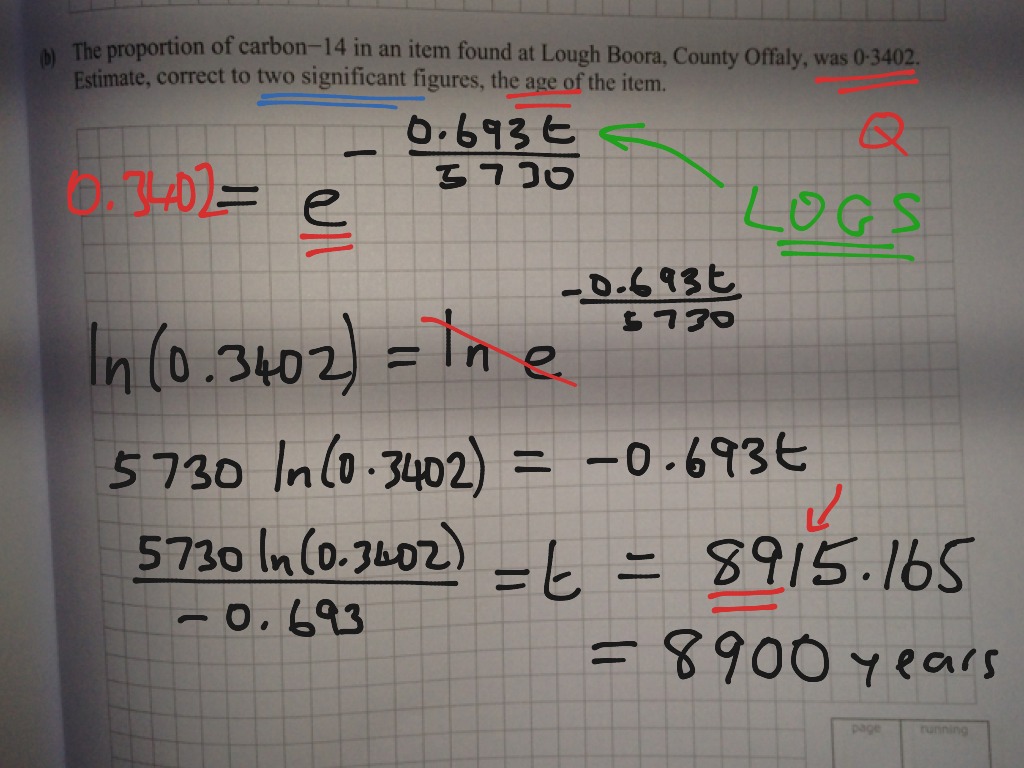 (b) The proportion of carbon–14 in an item found at Lough Boora, County Offaly, was 0·3402.
Estimate, correct to two significant figures, the age of the item.
Q
0.3402 = e^(- 0.693t / 5730)
LOGS
ln(0.3402) = ln e^(-0.693t / 5730)
5730 ln(0.3402) = -0.693t
5730 ln(0.3402) / -0.693 = t = 8915.165
= 8900 years
page running